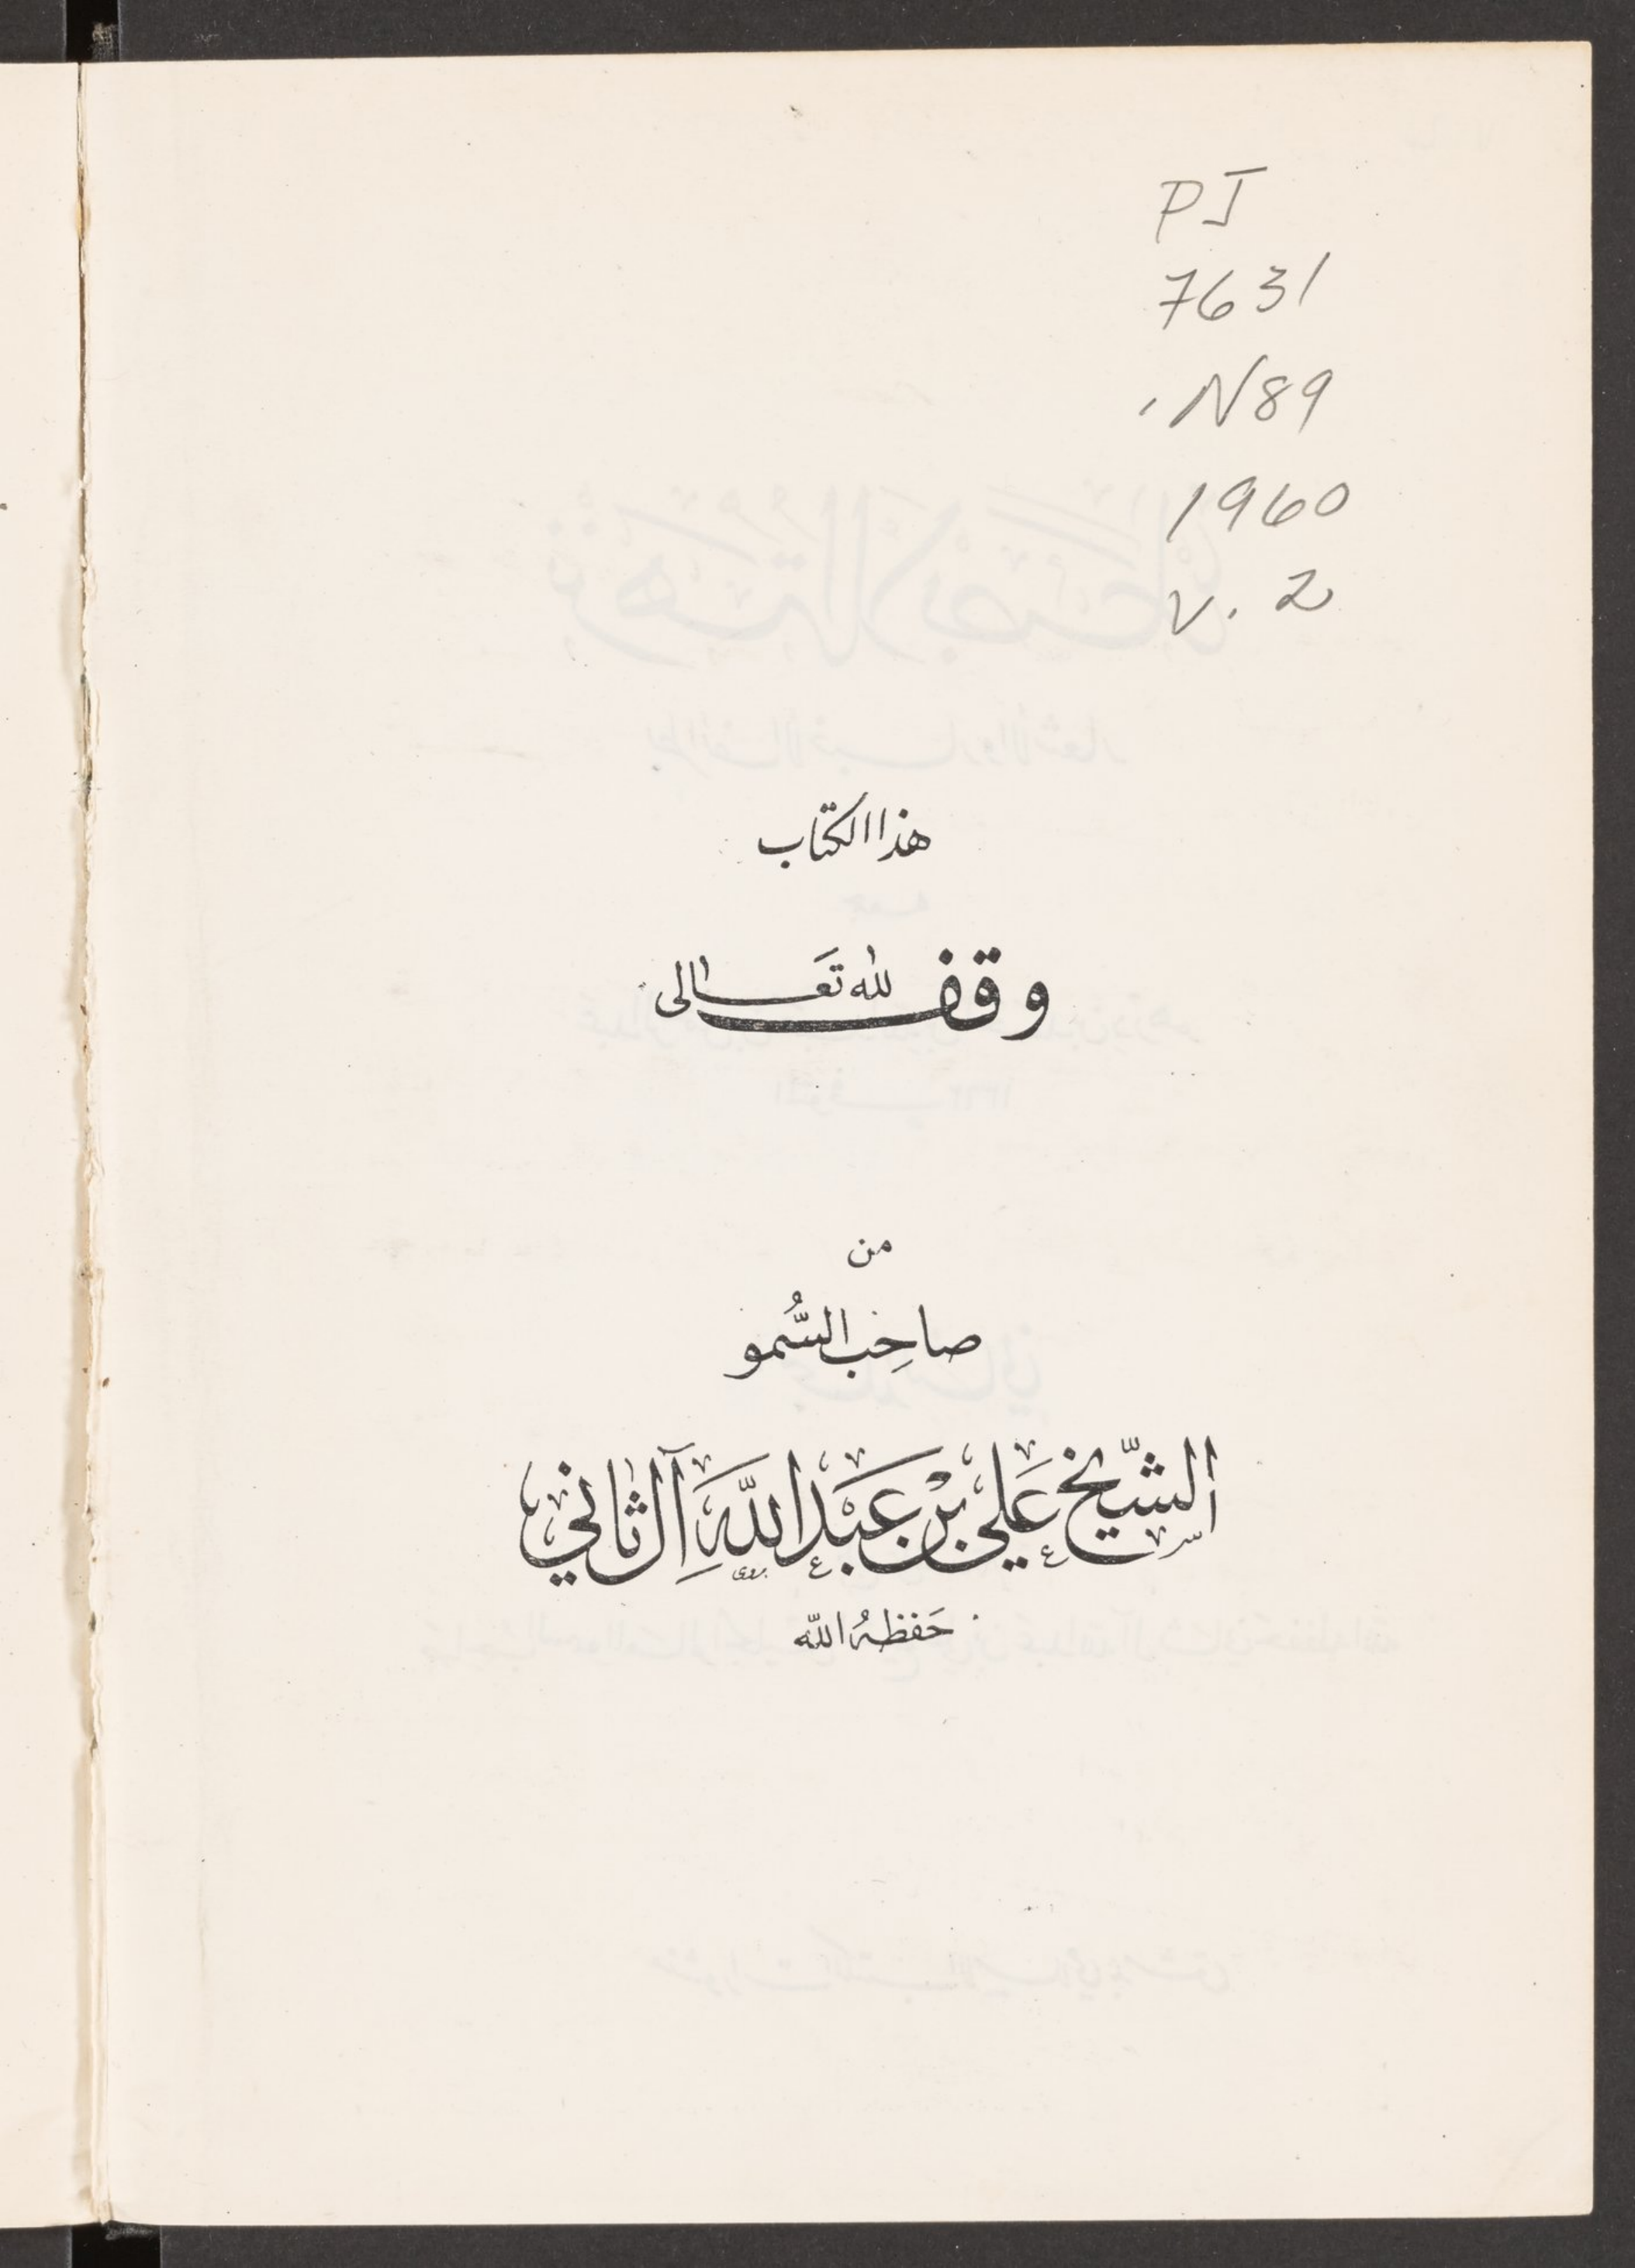 PJ
7631
.N89
1960
v. 2
هذا الكتاب
وقف لله تعالى
من
صاحب السُّمو
الشّيخ عَلي بْن عَبْد اللَّه آل ثاني
حَفظهُ الله